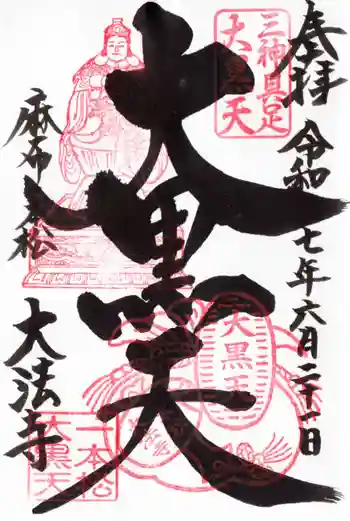 奉拝 令和七年六月二十一日
三神具足
大黒天
大黒天
麻布一本松
大法寺
大黒天
一本松
大黒天